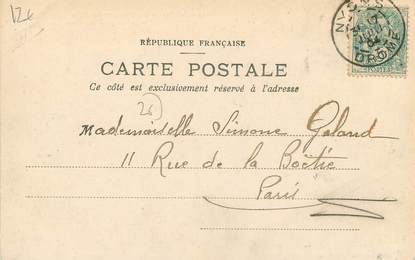 NYONS
DROME
RÉPUBLIQUE FRANÇAISE
CARTE POSTALE
Ce côté est exclusivement réservé à l'adresse
26
Mademoiselle Simone Galand
11 Rue de la Boëtie
Paris